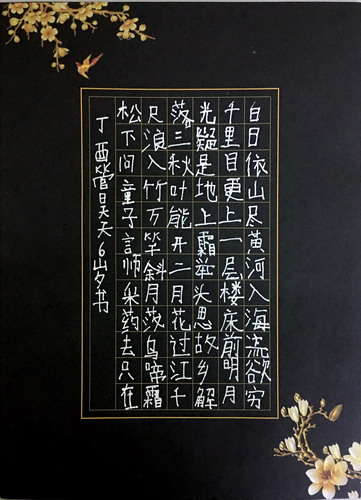 白日依山尽黄河入海流欲穷
千里目更上一层楼床前明月
光疑是地上霜举头思故乡解
落三秋叶能开二月花过江千
尺浪入竹万竿斜月落乌啼霜
松下问童子言师采药去只在
丁酉昊天6岁书